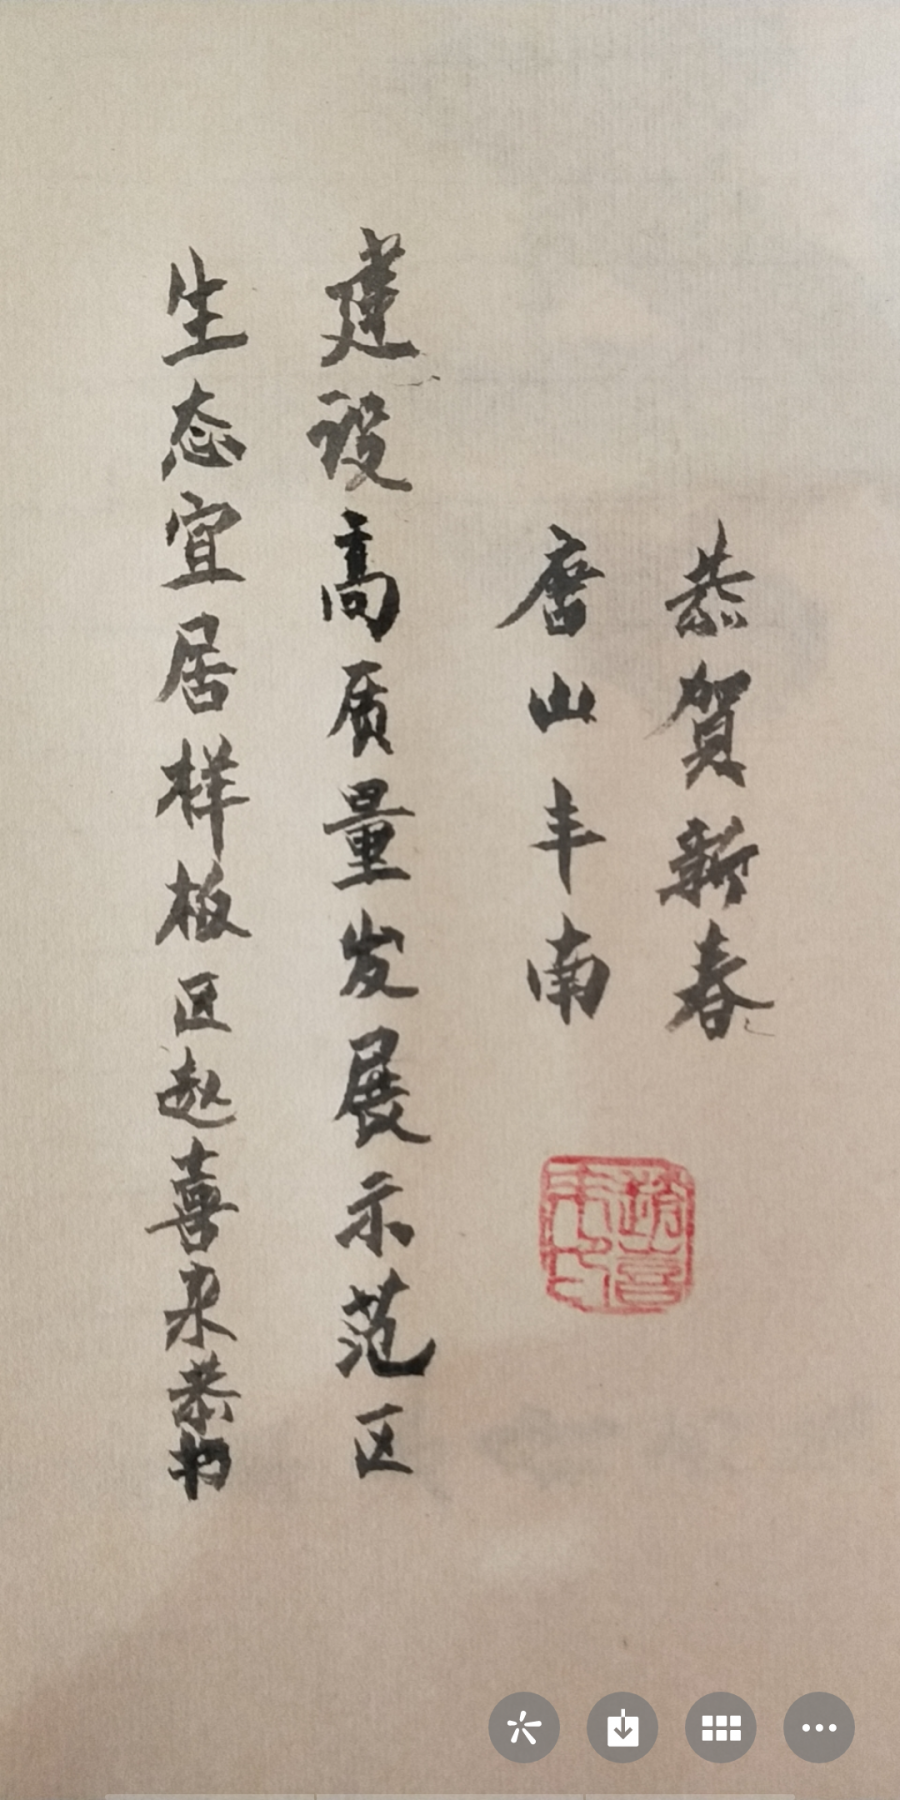 恭賀新春
唐山丰南
建设高质量发展示范区
生态宜居样板区赵喜来恭书